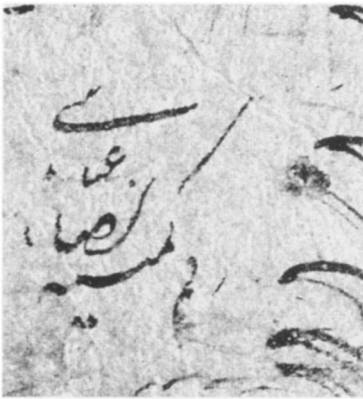 کمینه
رضاء
عباسی